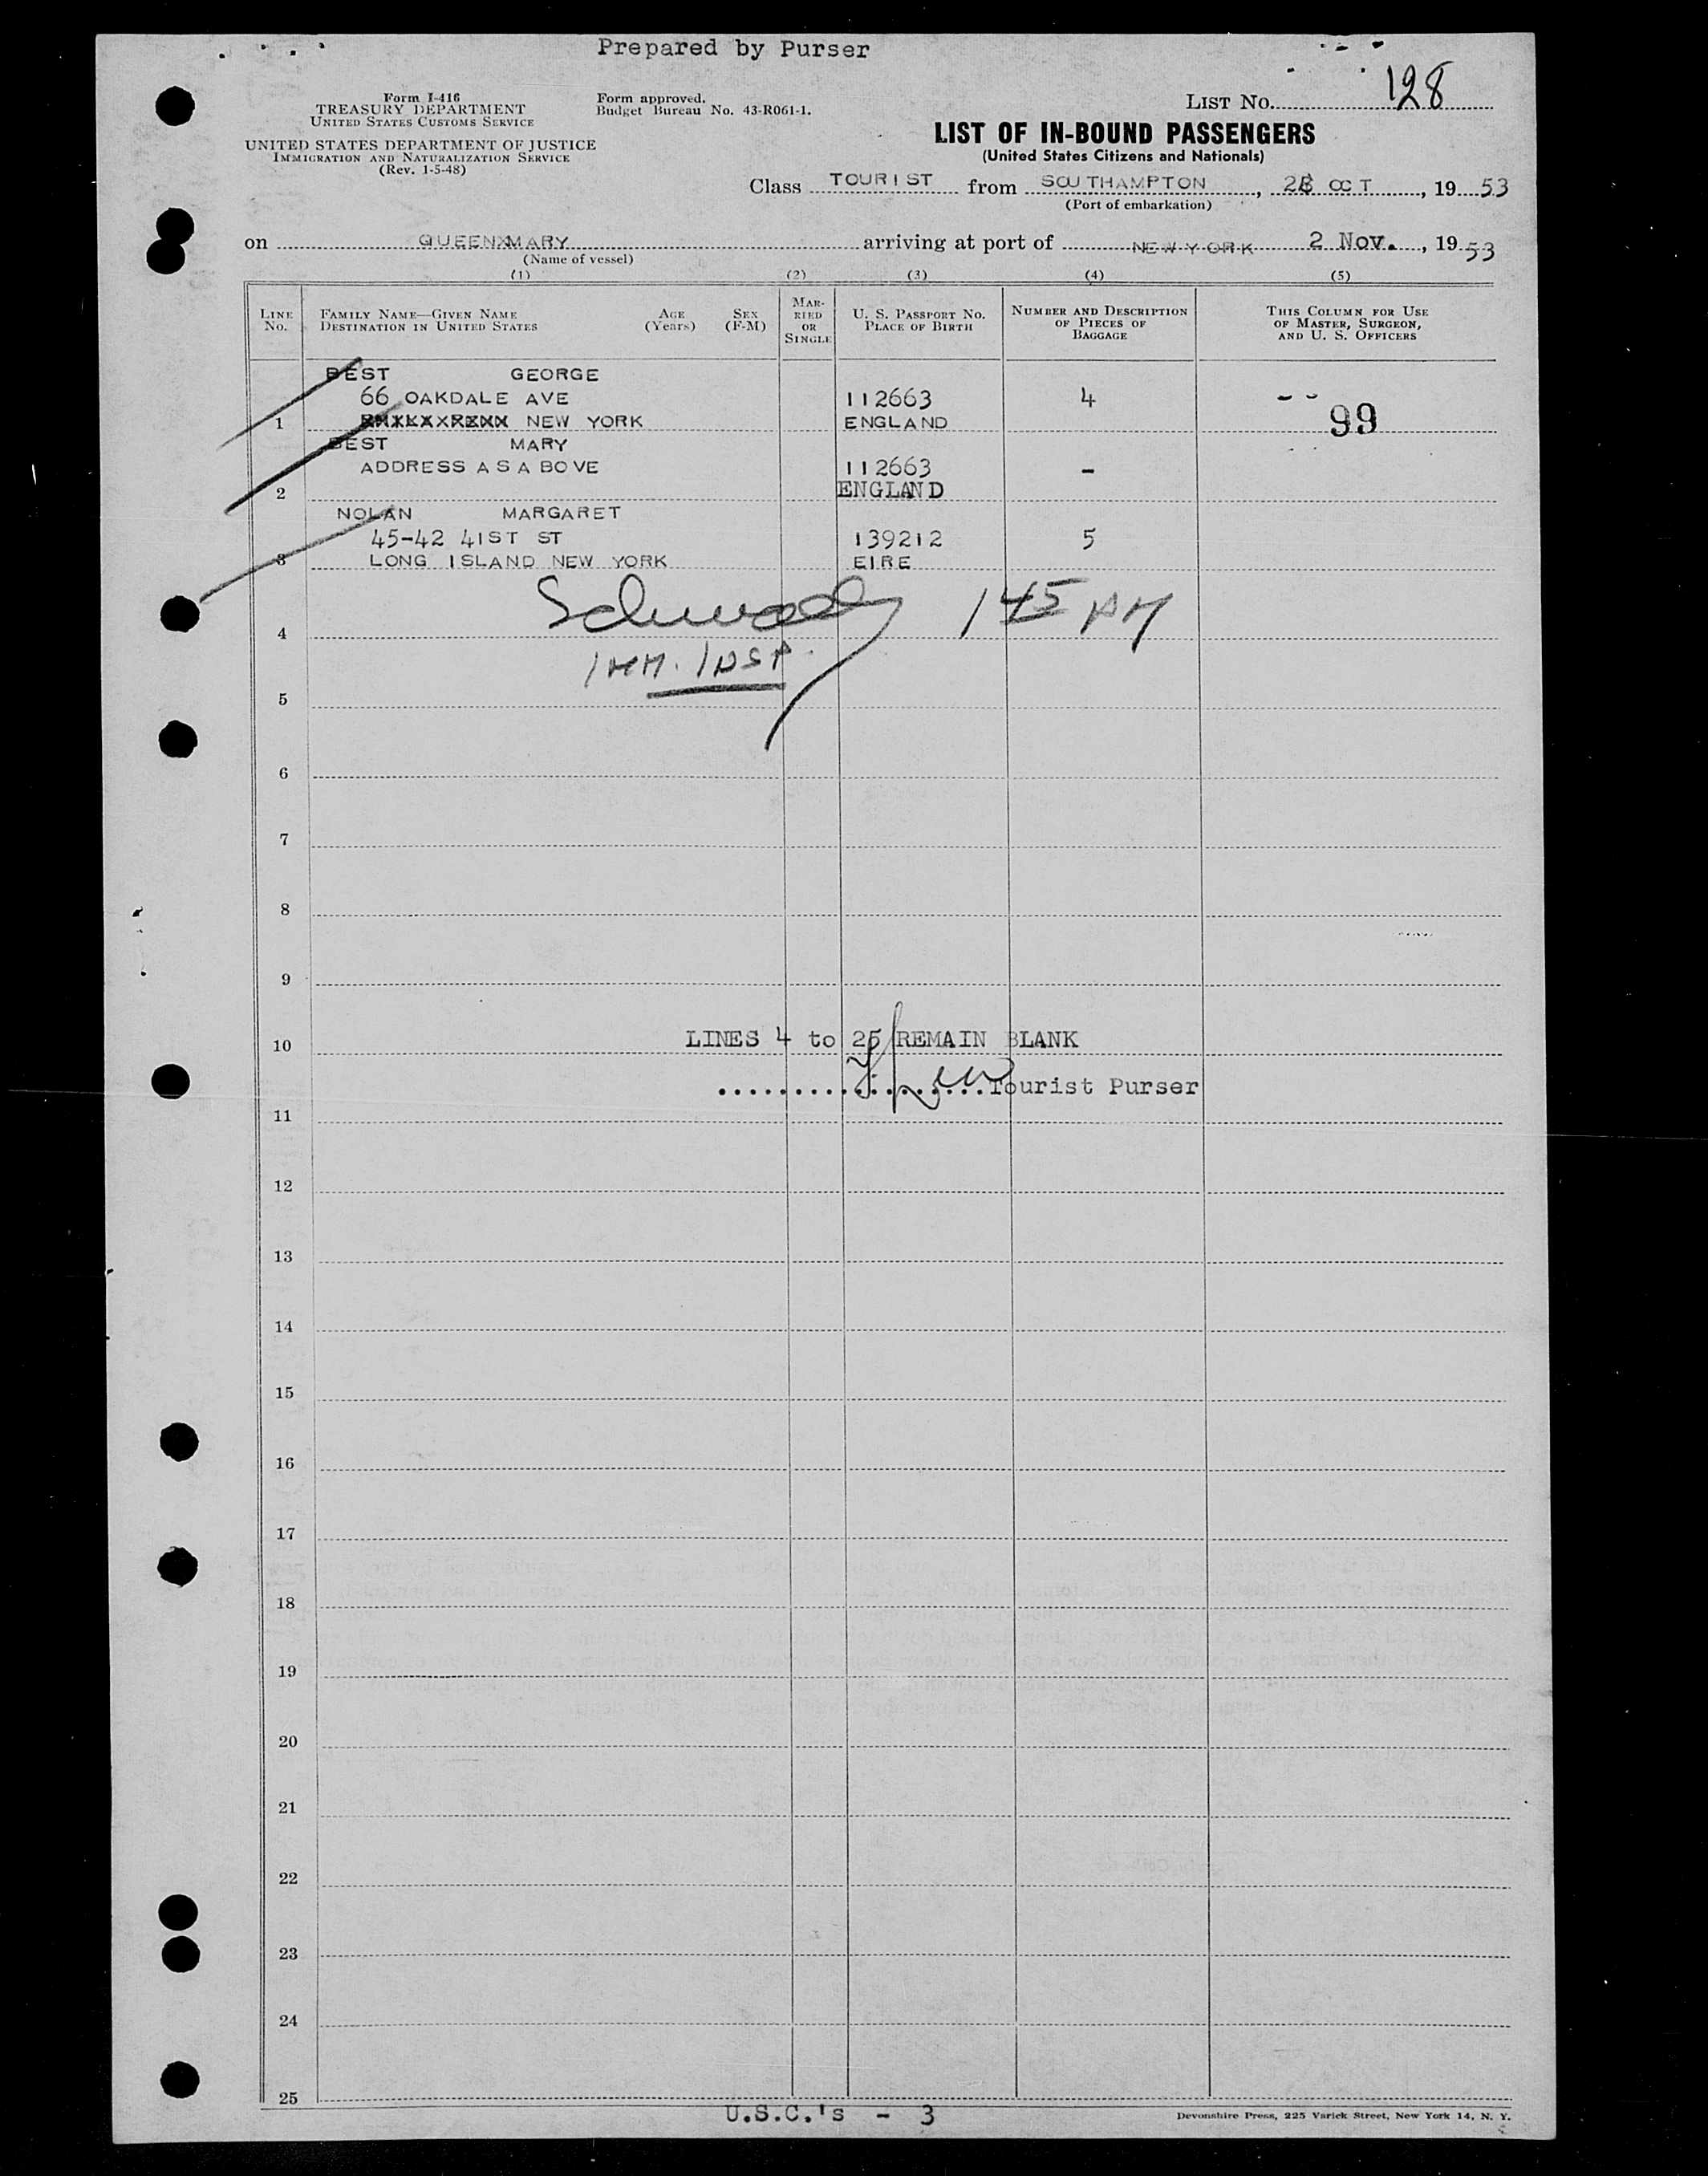 Prepared by Purser
Form I-416
TREASURY DEPARTMENT
UNITED STATES CUSTOMS SERVICE
UNITED STATES DEPARTMENT OF JUSTICE
IMMIGRATION AND NATURALIZATION SERVICE
(Rev. 1-5-48)
Form approved.
Budget Bureau No. 43-R061-1.
LIST NO. 128
LIST OF IN-BOUND PASSENGERS
(United States Citizens and Nationals)
Class TOURIST from SOUTHAMPTON, OCT, 1953
(Port of embarkation)
on QUEENXMARY arriving at port of NEW YORK 2 Nov., 1953
(Name of vessel)
(1) (2) (3) (4) (5)
LINE NO. FAMILY NAME—GIVEN NAME DESTINATION IN UNITED STATES AGE (Years) SEX (F-M) MARRIED OR SINGLE U. S. PASSPORT NO. PLACE OF BIRTH NUMBER AND DESCRIPTION OF PIECES OF BAGGAGE THIS COLUMN FOR USE OF MASTER, SURGEON, AND U. S. OFFICERS
BEST GEORGE
66 OAKDALE AVE 112663 4
1 NEW YORK ENGLAND 99
BEST MARY
ADDRESS AS ABOVE 112663 -
2 ENGLAND
NOLAN MARGARET
45-42 41ST ST 139212 5
3 LONG ISLAND NEW YORK EIRE
145 PM
4
IMM. INSP.
5
6
7
8
9
LINES 4 to 25 REMAIN BLANK
10
Tourist Purser
11
12
13
14
15
16
17
18
19
20
21
22
23
24
25
U.S.C.'s - 3
Devonshire Press, 225 Varick Street, New York 14, N. Y.